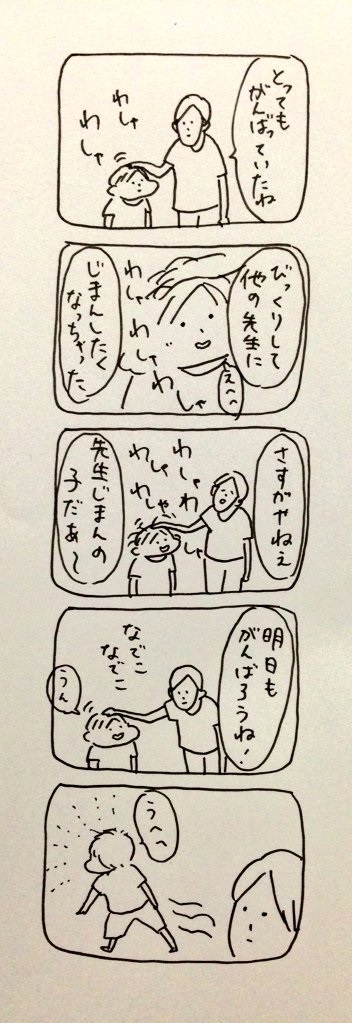 とっても
がんばっていたね
わしゃ
わしゃ
びっくりして
他の先生に
えへへ
わしゃ
わしゃ
わしゃ
じまんしたく
なっちゃった
さすがやねえ
わしゃ
わしゃ
わしゃ
わしゃ
先生じまんの
子だぁ〜
明日も
がんばろうね!
なでこ
なでこ
うん
うへへ